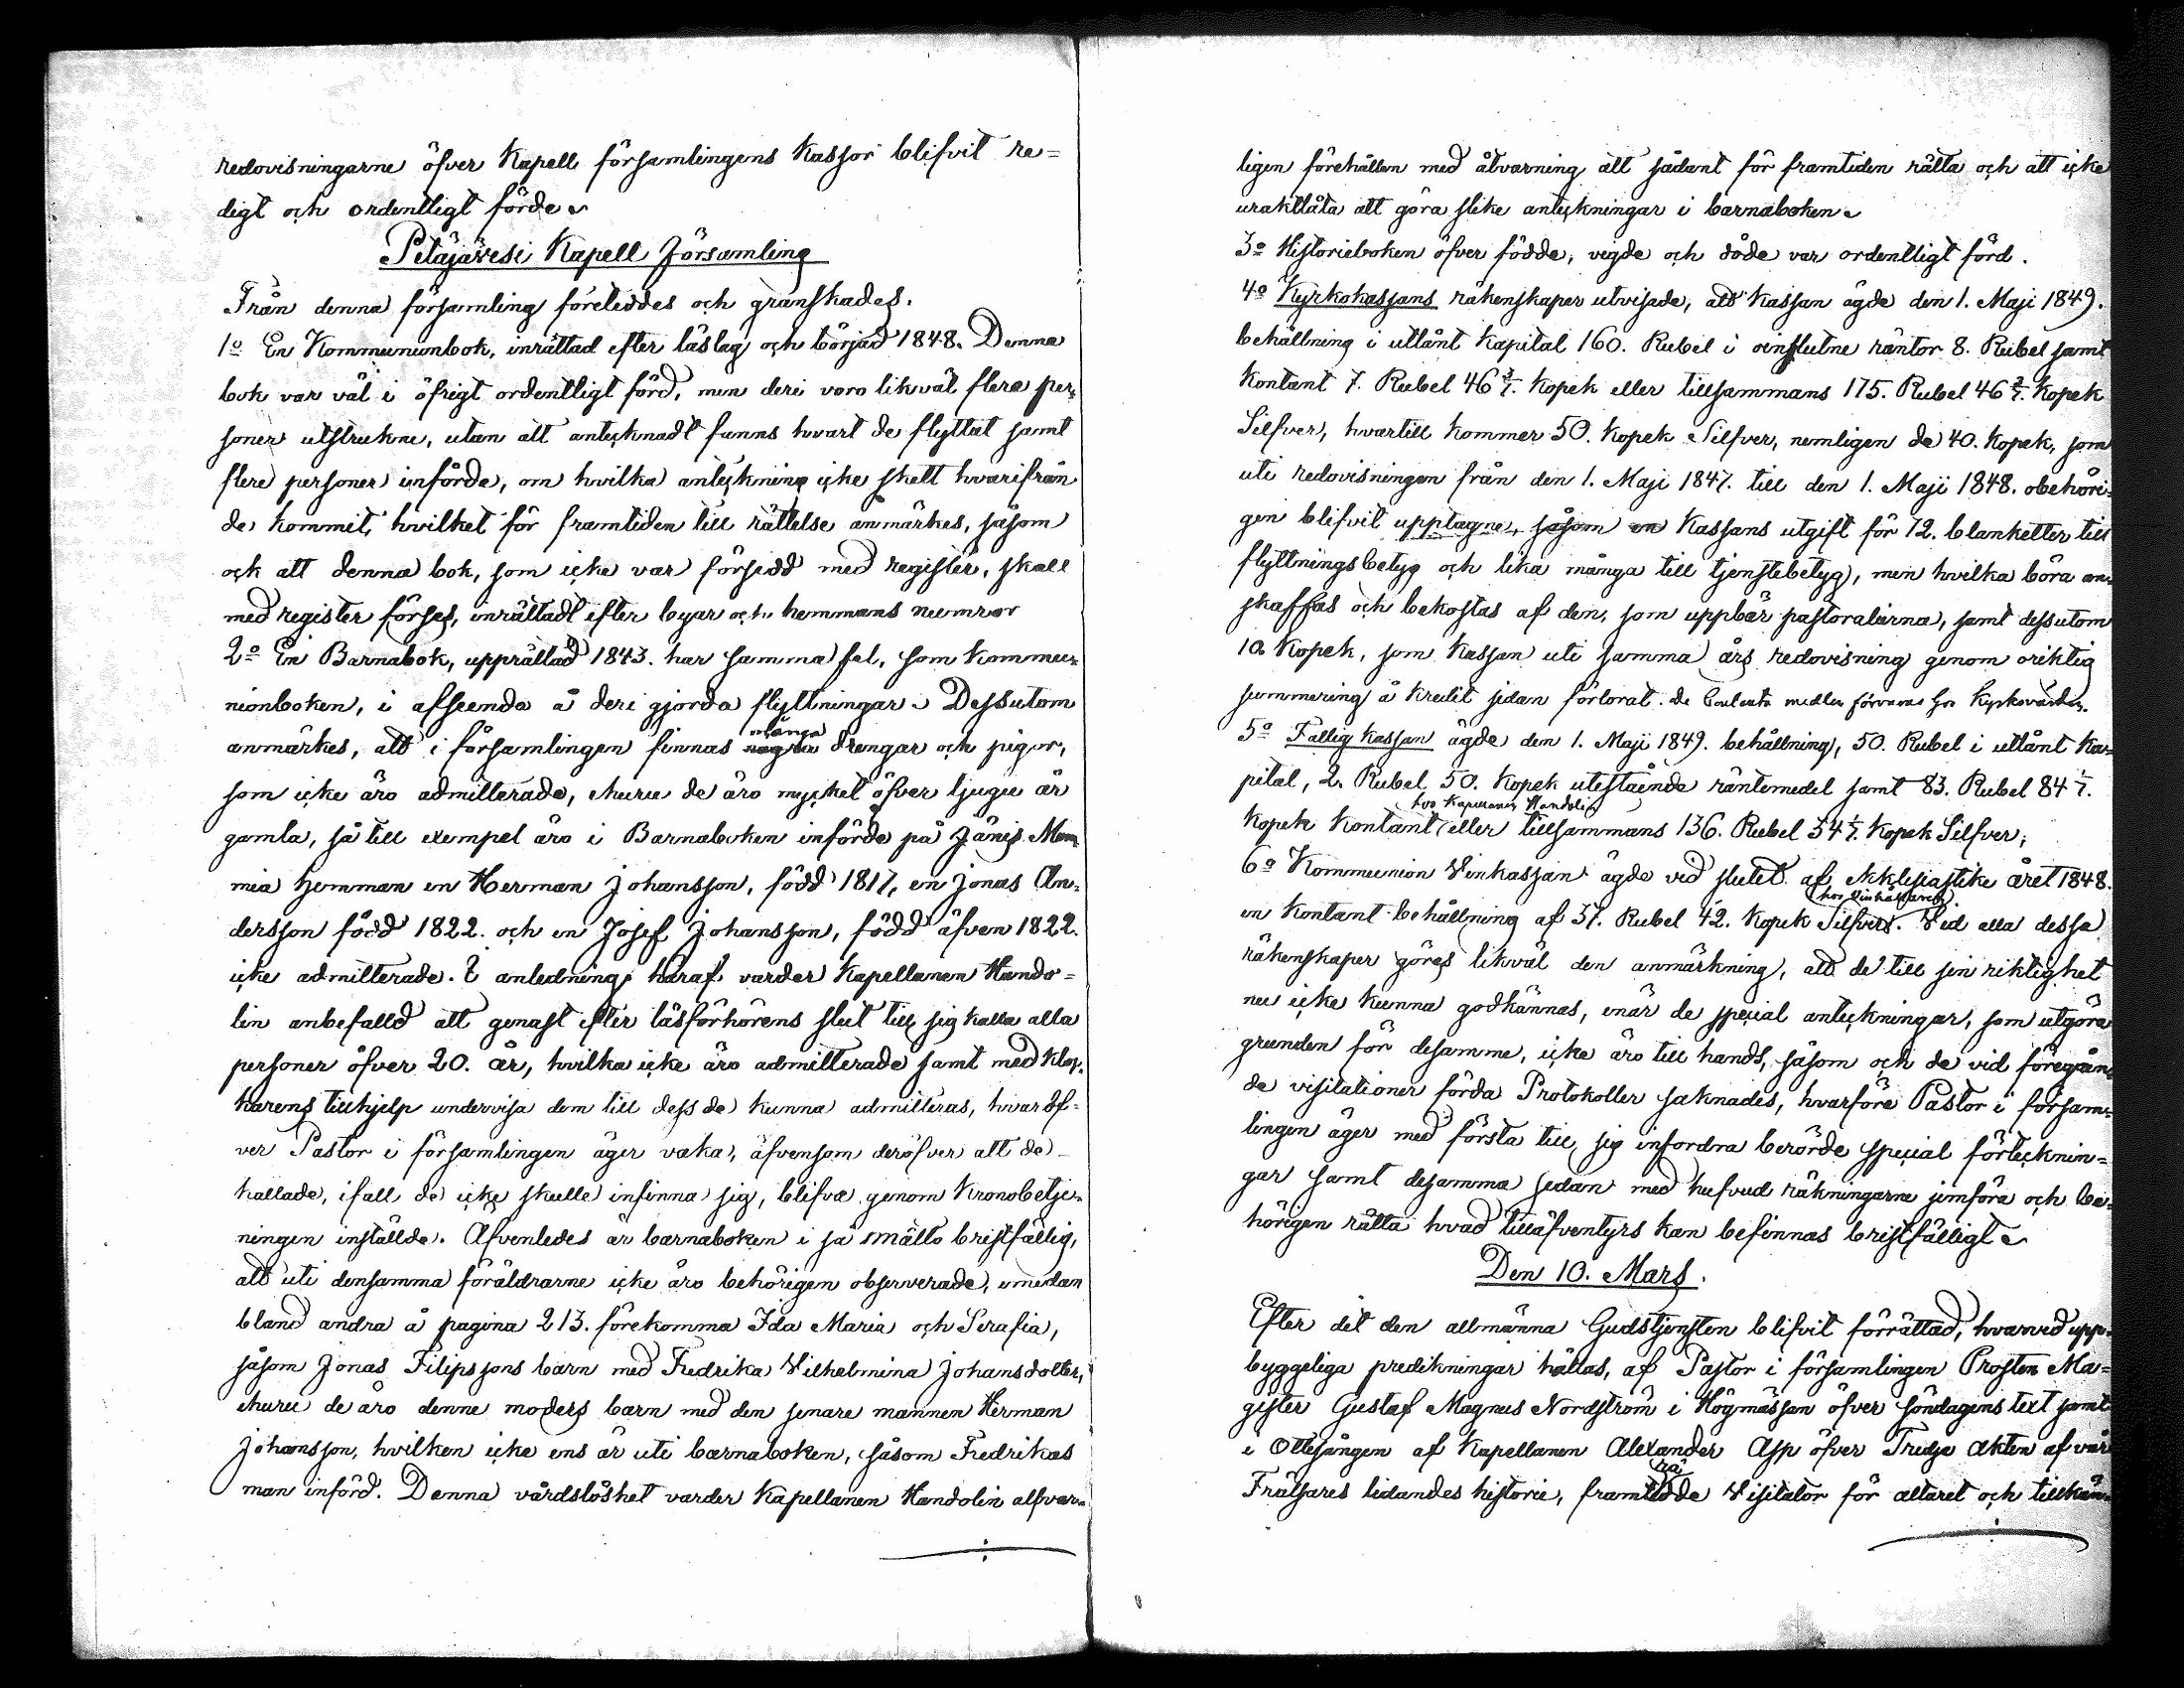 redovisningarne öfver Kapell församlingens Kassor blifvit re=
digt och ordentligt förde.
Petäjävesi Kapell Församling
Från denna församling företeddes och granskades.
1º En Kommunionbok, inrättad efter läslag och börjad 1848. Denna
bok var väl i öfrigt ordentligt förd, men deri voro likväl flera per=
soner utstrukne, utan att antecknadt fanns hvart de flyttat samt
flere personer införde, om hvilka anteckning icke skett hvarifrån
de kommit, hvilket för framtiden till rättelse anmärkes, såsom
ock att denna bok, som icke var försedd med register, skall
med register förses, inrättadt efter byar och hemmans numror
2º En Barnabok, upprättad 1843. har samma fel, som Kommu=
nionboken, i afseende å deri gjorda flyttningar. Dessutom
anmärkes, att i församlingen finnas många drengar och pigor,
som icke äro admitterade, ehuru de äro mycket öfver tjugu år
gamla, så till exempel äro i Barnaboken införde på Jänis Mem
mia Hemman en Herman Johansson, född 1817, en Jonas An=
dersson född 1822. och en Josef Johansson, född äfven 1822.
icke admitterade. I anledning häraf varder Kapellanen Hando=
lin anbefalld att genast efter läsförhörens slut till sig kalla alla
personer öfver 20. år, hvilka icke äro admitterade samt med Kloc=
karens tillhjelp undervisa dem till dess de kunna admitteras, hvaröf=
ver Pastor i församlingen äger vaka, äfvensom deröfver att de
kallade, ifall de icke skulle infinna sig, blifva genom Kronobetje=
ningen inställde. Äfvenledes är barnaboken i så måtto bristfällig,
att uti densamma föräldrarne icke äro behörigen observerade, emedan
bland andra å pagina 213. förekomma Ida Maria och Serafia,
såsom Jonas Filipssons barn med Fredrika Vilhelmina Johansdotter,
ehuru de äro denne moders barn med den senare mannen Herman
Johansson, hvilken icke ens är uti barnaboken, såsom Fredrikas
man införd. Denna vårdslöshet varder Kapellanen Handolin alfvar=
ligen förehållen med åtvarning att sådant för framtiden rätta och att icke
uraktlåta att göra slike anteckningar i barnaboken.
3º Historieboken öfver födde, vigde och döde var ordentligt förd.
4º Kyrkokassans räkenskaper utvisade, att Kassan ägde den 1. Maji 1849.
behållning i utlånt Kapital 160. Rubel i oinflutne räntor 8. Rubel samt
Kontant 7. Rubel 46 2/7. Kopek eller tillsammans 175. Rubel 46 2/7. Kopek
Silfver, hvartill kommer 50. Kopek Silfver, nemligen de 40. Kopek, som
uti redovisningen från den 1. Maji 1847. till den 1. Maji 1848. obehöri=
gen blifvit upptagne, såsom en Kassans utgift för 12. blanketter till
flyttningsbetyg och lika många till tjenstebetyg, men hvilka böra an=
skaffas och bekostas af den, som uppbär pastoralierna, samt dessutom
10. Kopek, som Kassan uti samma års redovisning genom oriktig
summering å kredit sidan förlorat. De medlen förvaras hos Kyrkovärden.
5º Fattig Kassan ägde den 1. Maji 1849. behållning, 50. Rubel i utlånt Ka=
pital, 2. Rubel 50. Kopek utestående räntemedel samt 83. Rubel 84 1/7.
hos Kapellanen Handolin
Kopek Kontant eller tillsammans 136. Rubel 34 1/7. Kopek Silfver;
6º Kommunion Vinkassan ägde vid slutet af ekklesiastike året 1848.
hos Vinhållaren
en Kontant behållning af 37. Rubel 42. Kopek Silfver. Vid alla dessa
räkenskaper göres likväl den anmärkning, att de till sin riktighet
nu icke kunna godkännas, enär de special anteckningar, som utgöra
grunden för desamme, icke äro till hands, såsom och de vid föregåen=
de visitationer förda Protokoller saknades, hvarföre Pastor i försam=
lingen äger med första till sig infordra berörde special förtecknin=
gar samt desamma sedan med hufvud räkningarne jemföra och be=
hörigen rätta hvad tilläfventyrs kan befinnas bristfälligt.
Den 10. Mars.
Efter det den allmänna Gudstjensten blifvit förrättad, hvarvid upp=
byggeliga predikningar hållas, af Pastor i församlingen Prosten Ma=
gister Gustaf Magnus Nordström i Högmässan öfver söndagens text samt
i Ottesången af Kapellanen Alexander Asp öfver Tredje Akten af vår
Frälsares lidandes historie, framträdde Visitator för altaret och tillkän=